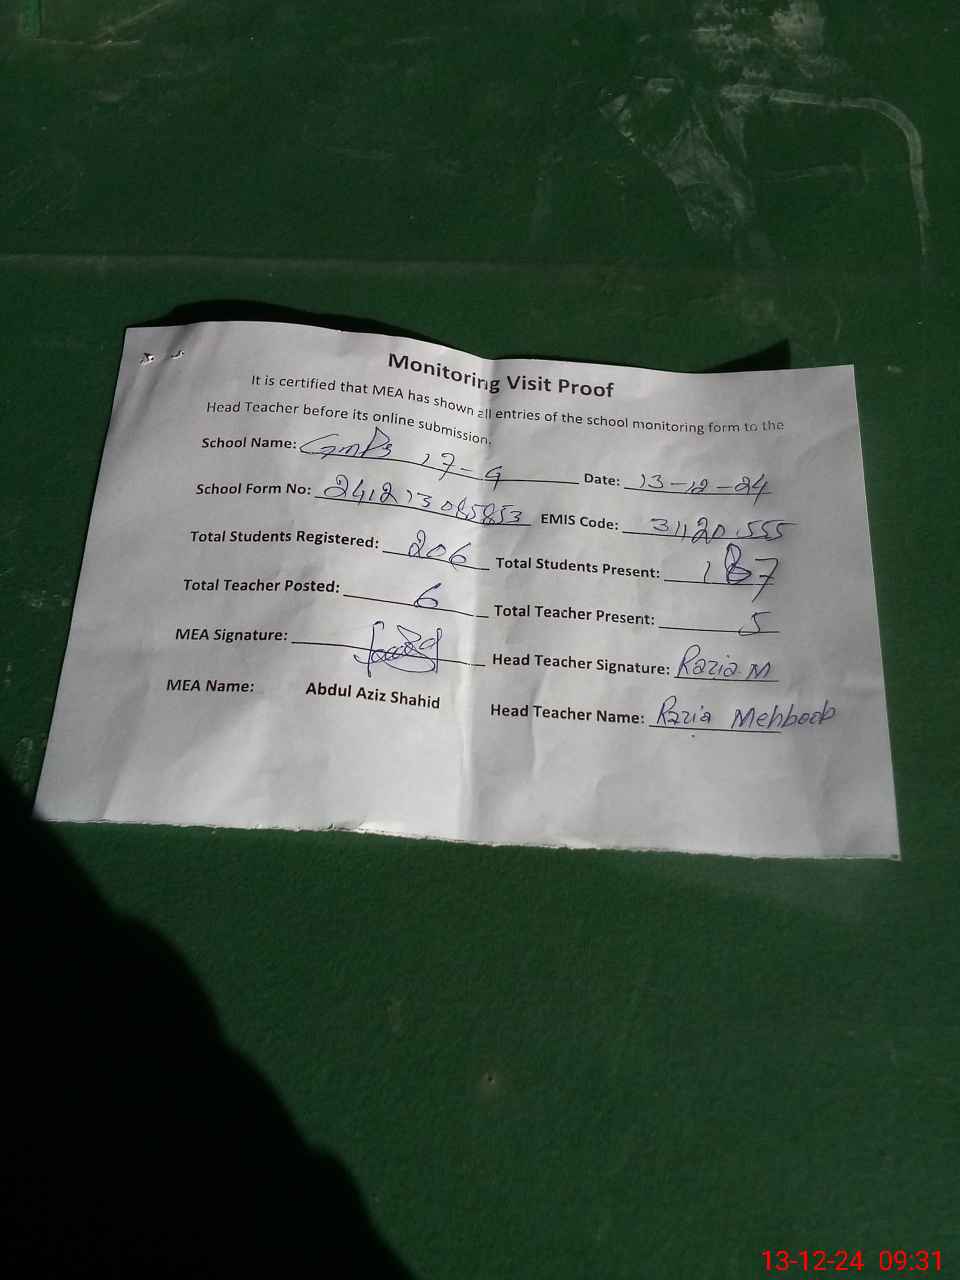 Monitoring Visit Proof
It is certified that MEA has shown all entries of the school monitoring form to the
Head Teacher before its online submission.
School Name: GMPS 17-G Date: 13-12-24
School Form No: 241213085853 EMIS Code: 31120555
Total Students Registered: 206 Total Students Present: 187
Total Teacher Posted: 6 Total Teacher Present: 5
MEA Signature: Head Teacher Signature: Razia M
MEA Name: Abdul Aziz Shahid Head Teacher Name: Razia Mehboob
13-12-24 09:31